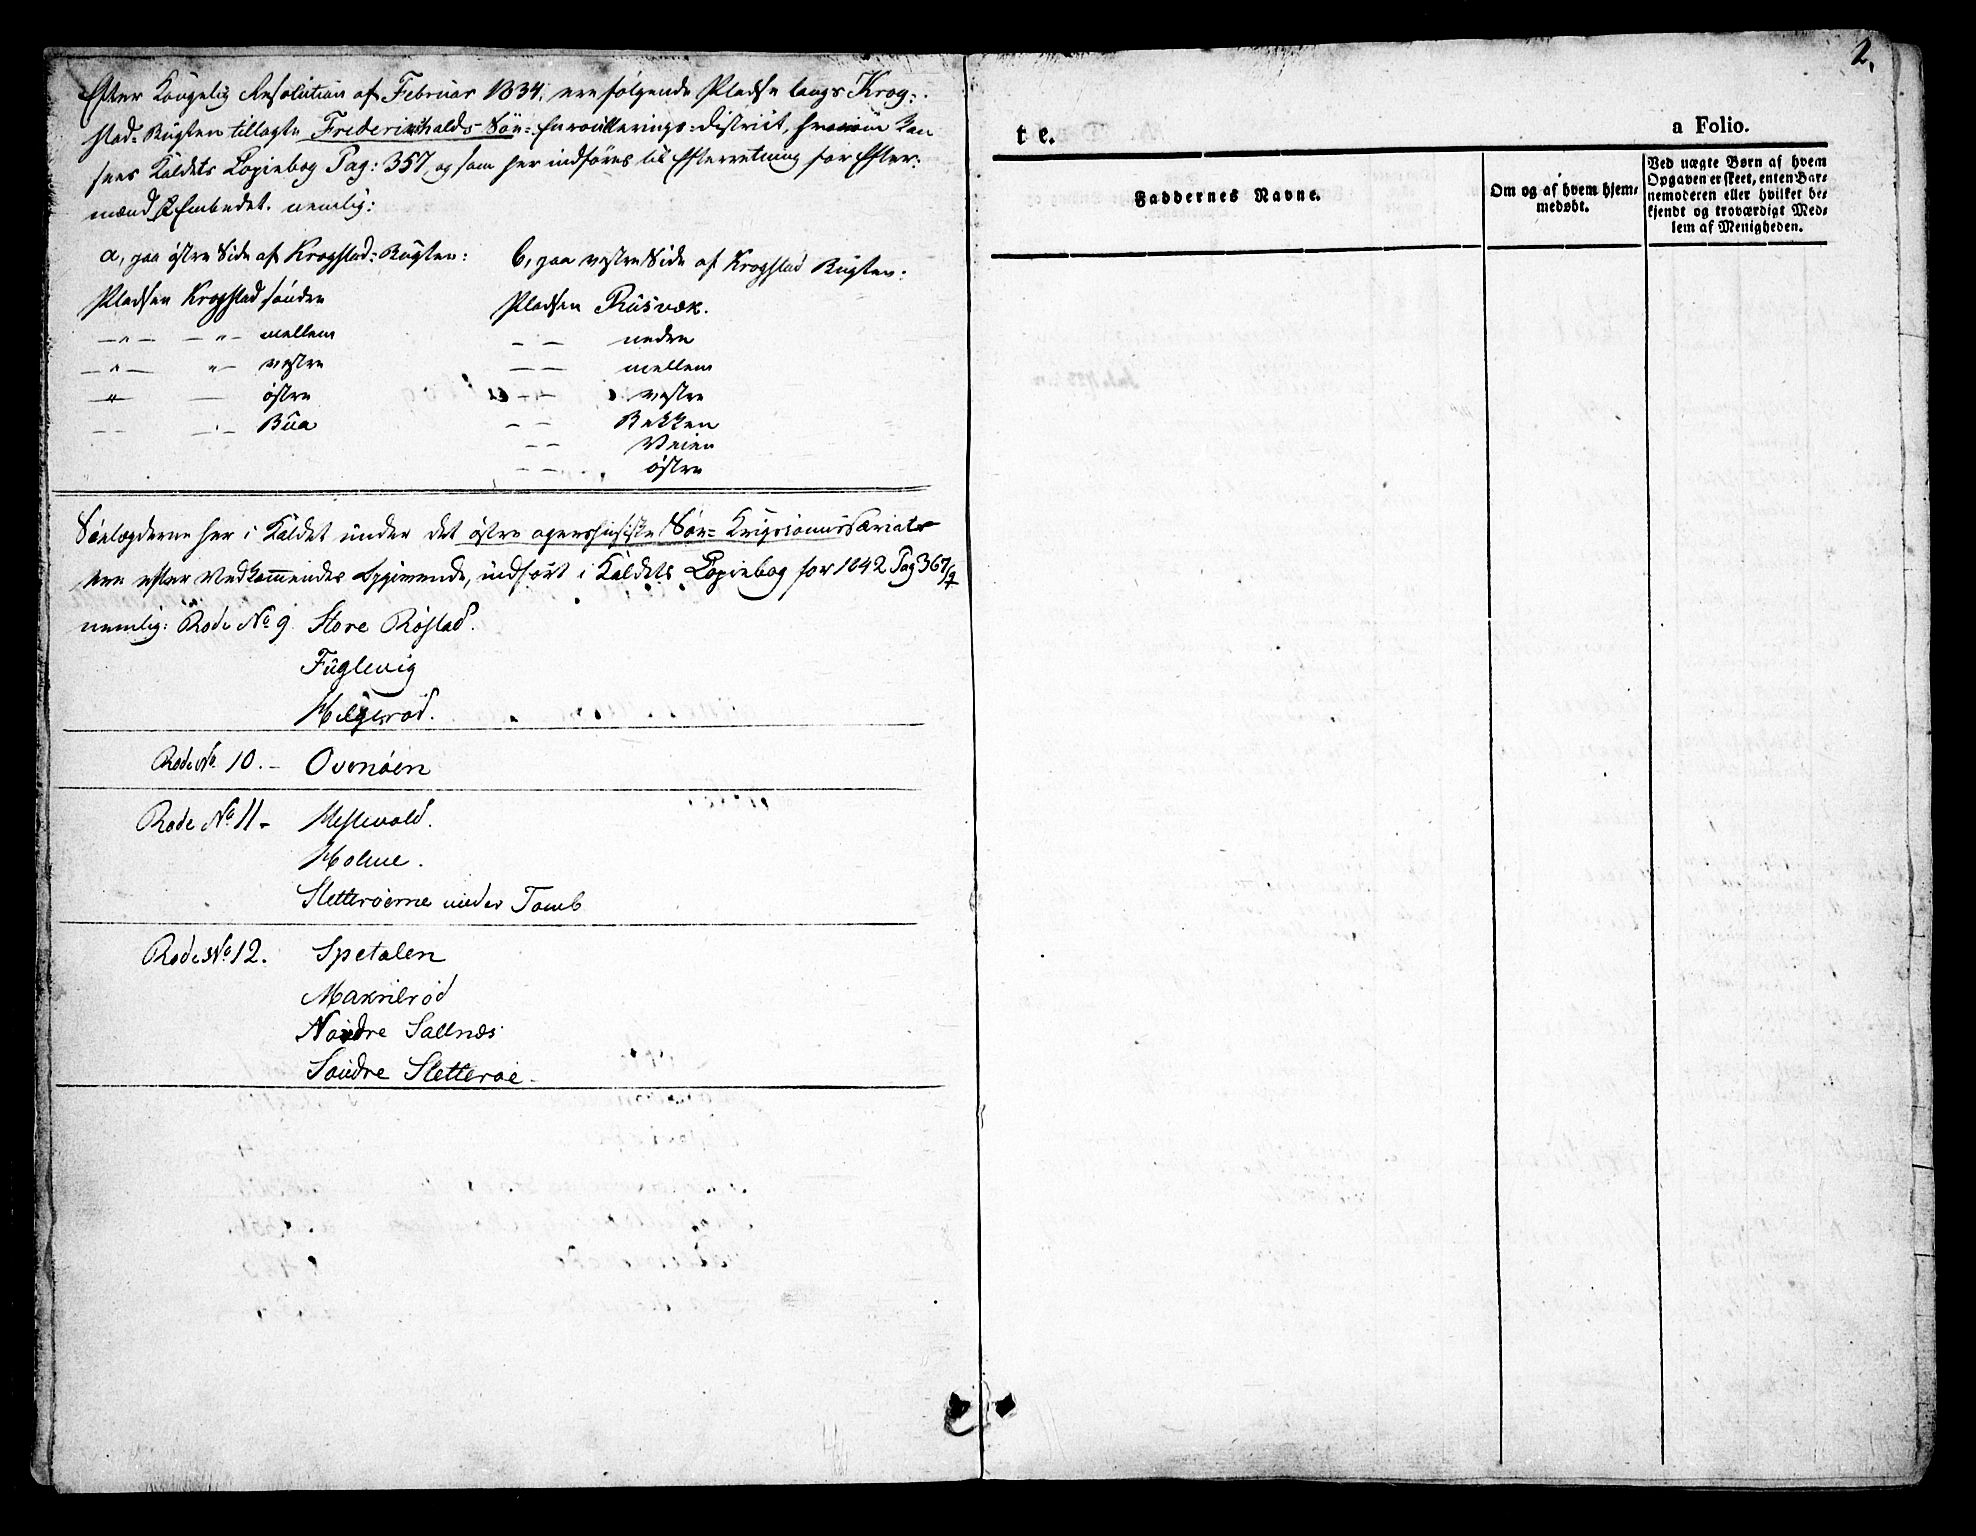 Efter Kongelig Resolution af Februar 1834, ere følgende Pladse langs Krog-
stad-Bugten tillagte Frederikshalds Søe-Enroullerings-District,
sees Kaldets Copiebog Pag: 357, og som her indføres til Efterretning for Efter-
mænd i Embedet. nemlig:
a, paa østre Side af Krogstad-Bugten:
Pladsen Krogstad søndre
— " — — " — mellem
— " — " — vestre
— " — — østre
— — — " — Bua
b, paa vestre Side af Krogstad Bugten:
Pladsen Rusvæk.
— — nedre
— — mellem
— — vestre
— — Bekken
— — Veien
— — østre
Søelægderne her i Kaldet under det østre agershusiske Søe-Krigscommissariat
ere efter Vedkommendes Opgivende, indført i Kaldets Copiebog for 1842 Pag 367
nemlig: Rode No 9. Store Røstad.
Fuglevig
Helgerød.
Rode No 10. – Ovenøen
Rode No 11 – Meslevold.
Holme.
Sletterøerne under Tomb
Rode No 12. Spetalen
Makrilrød
Nordre Sallnæs
Søndre Sletterøe.
2.
te.
a Folio.
Faddernes Navne.
Om og af hvem hjem-
medøbt.
Ved uægte Børn af hvem
Opgaven er skeet, enten Bar-
nemoderen eller hvilket be-
kjendt og troværdigt Med-
lem af Menigheden.